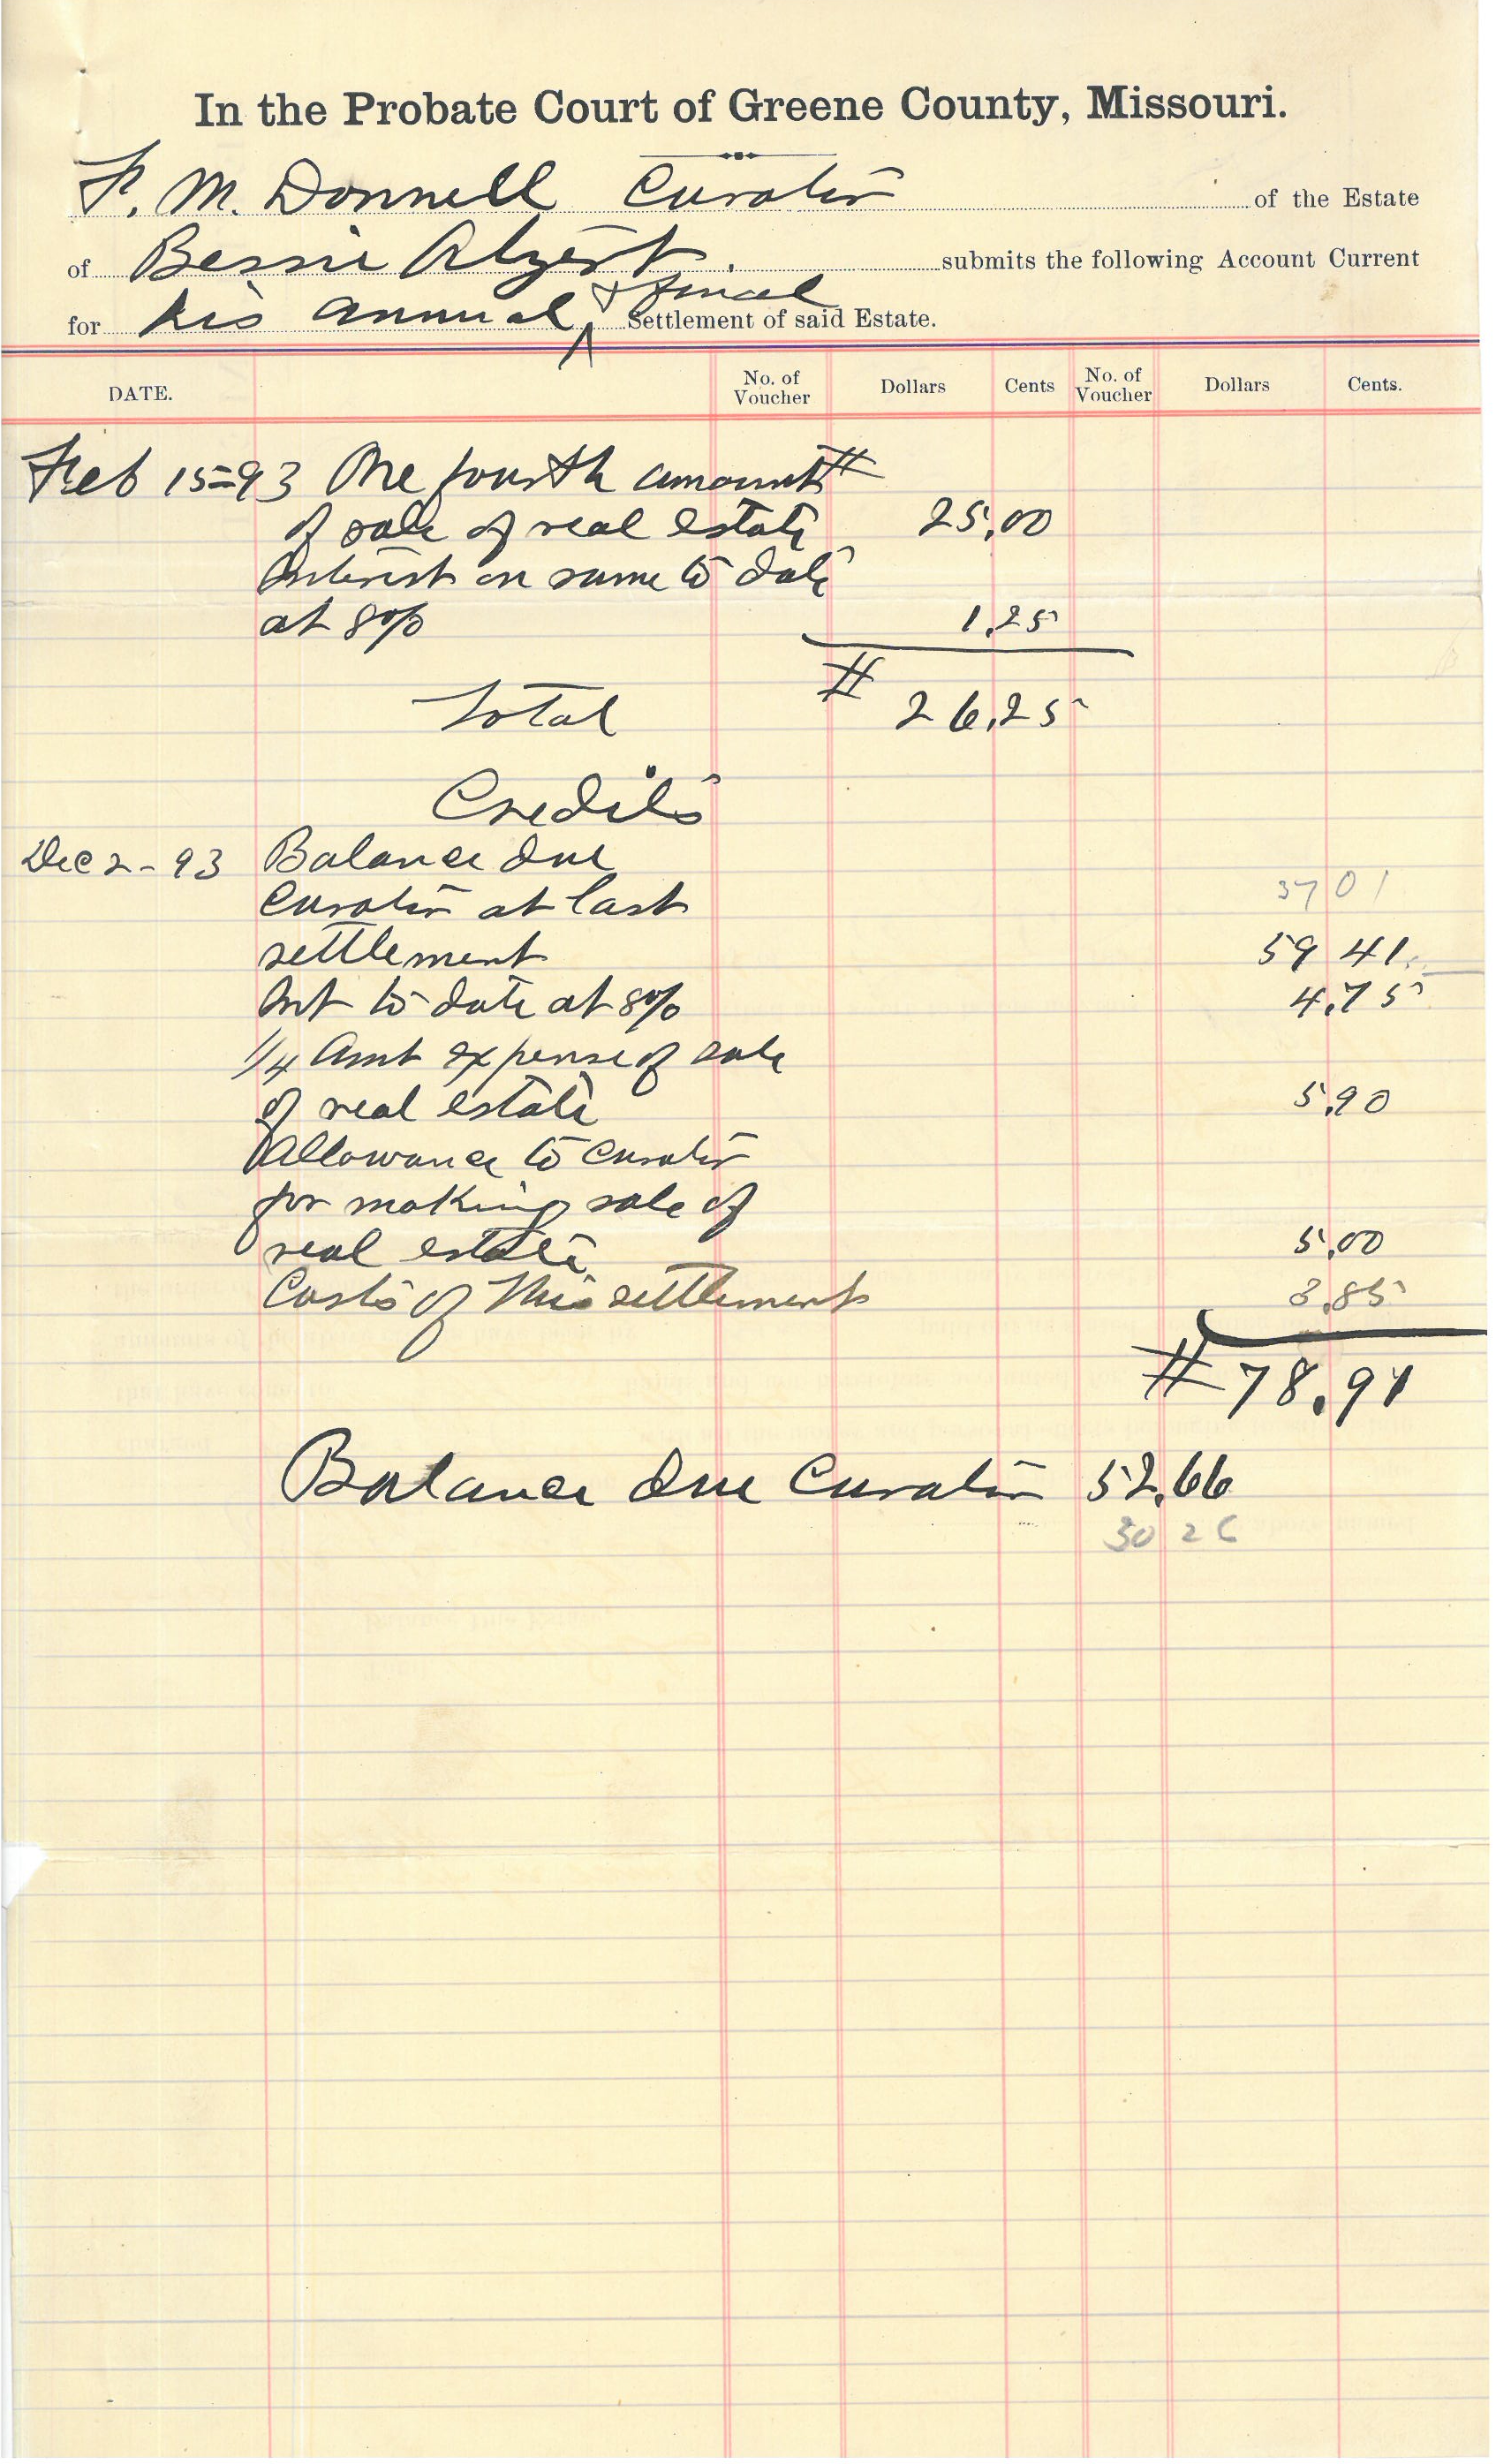 In the Probate Court of Greene County, Missouri.
F. M. Donnell Curator of the Estate
of Bessie Alzert. submits the following Account Current
& final
for his annual Settlement of said Estate.
DATE. No. of Voucher Dollars Cents No. of Voucher Dollars Cents.
Feb 15=93 One fourth amount #
of sale of real estate 25,00
Interest on same to date
at 8% 1.25
Total # 26,25
Credits
Dec 2-93 Balance due
3701
Curator at last
settlement 59 41.
Int to date at 8% 4.75
1/4 Amt expense of sale
of real estate 5,90
Allowance to curator
for making sale of
real estate 5,00
Costs of this settlement 3,85
# 78.91
Balance due Curator 52,66
30 26